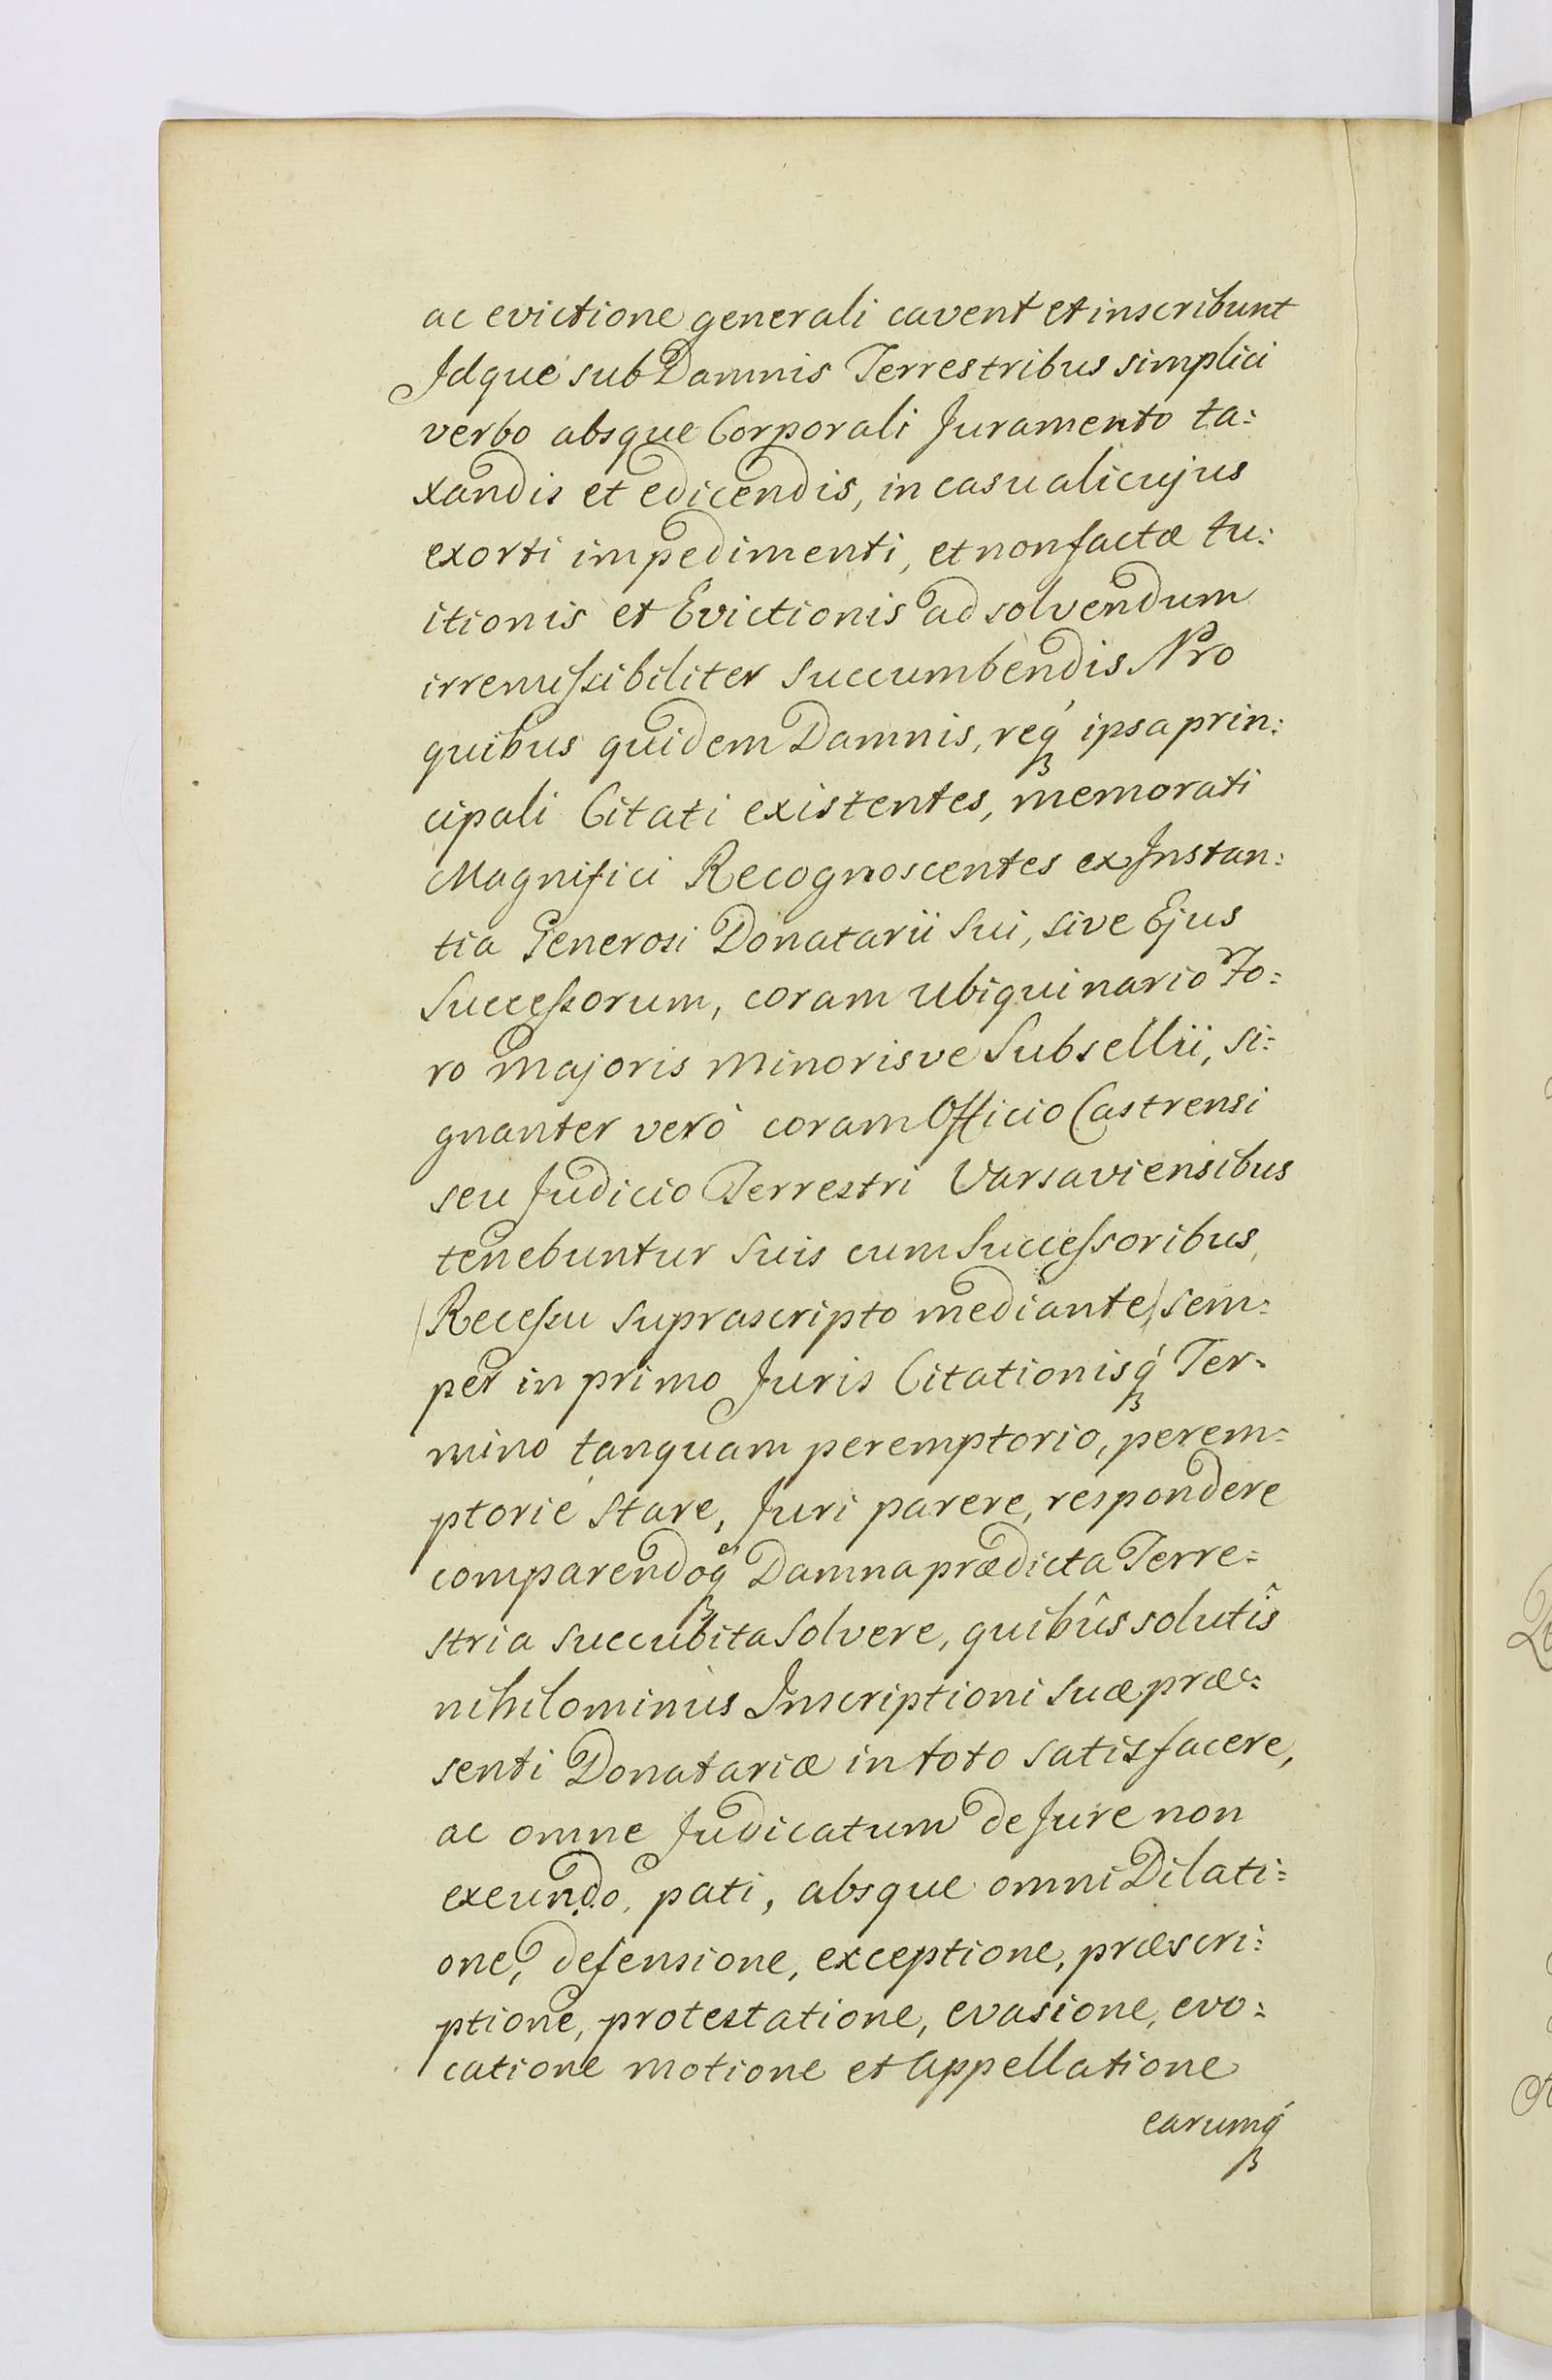 ac evictione generali cavent et inscribunt
Idque sub Damnis Terrestribus simplici
verbo absque Corporali Juramento ta:
xandis et edicendis, in casu alicujus
exorti impedimenti, et non factæ tu:
itionis et Evictionis ad solvendum
irremissibiliter succumbendis Pro
quibus quidem Damnis, req́ꝫ ipsa prin:
cipali Citati existentes, memorati
Magnifici Recognoscentes ex Instan:
tia Generosi Donatarii sui, sive Ejus
Successorum, coram Ubiquinario Fo:
ro Majoris Minorisve Subsellii, si:
gnanter verò coram Officio Castrensi
seu Judicio Terrestri Varsaviensibus
tenebuntur suis cum Successoribus,
(Recessu suprascripto mediante) sem:
per in primo Juris Citationisq́ꝫ Ter:
mino tanquam peremptorio, perem:
ptorié stare, Juri parere, respondere
comparendoq́ꝫ Damna prædicta Terre:
stria succubita solvere, quibûs solutîs
nihilominus Inscriptioni suæ præ:
senti Donatariæ in toto satisfacere,
ac omne Judicatum de Jure non
exeundo, pati, absque omni Dilati:
one, defensione, exceptione, præscri:
ptione, protestatione, evasione, evo:
catione motione et appellatione
earumq́ꝫ